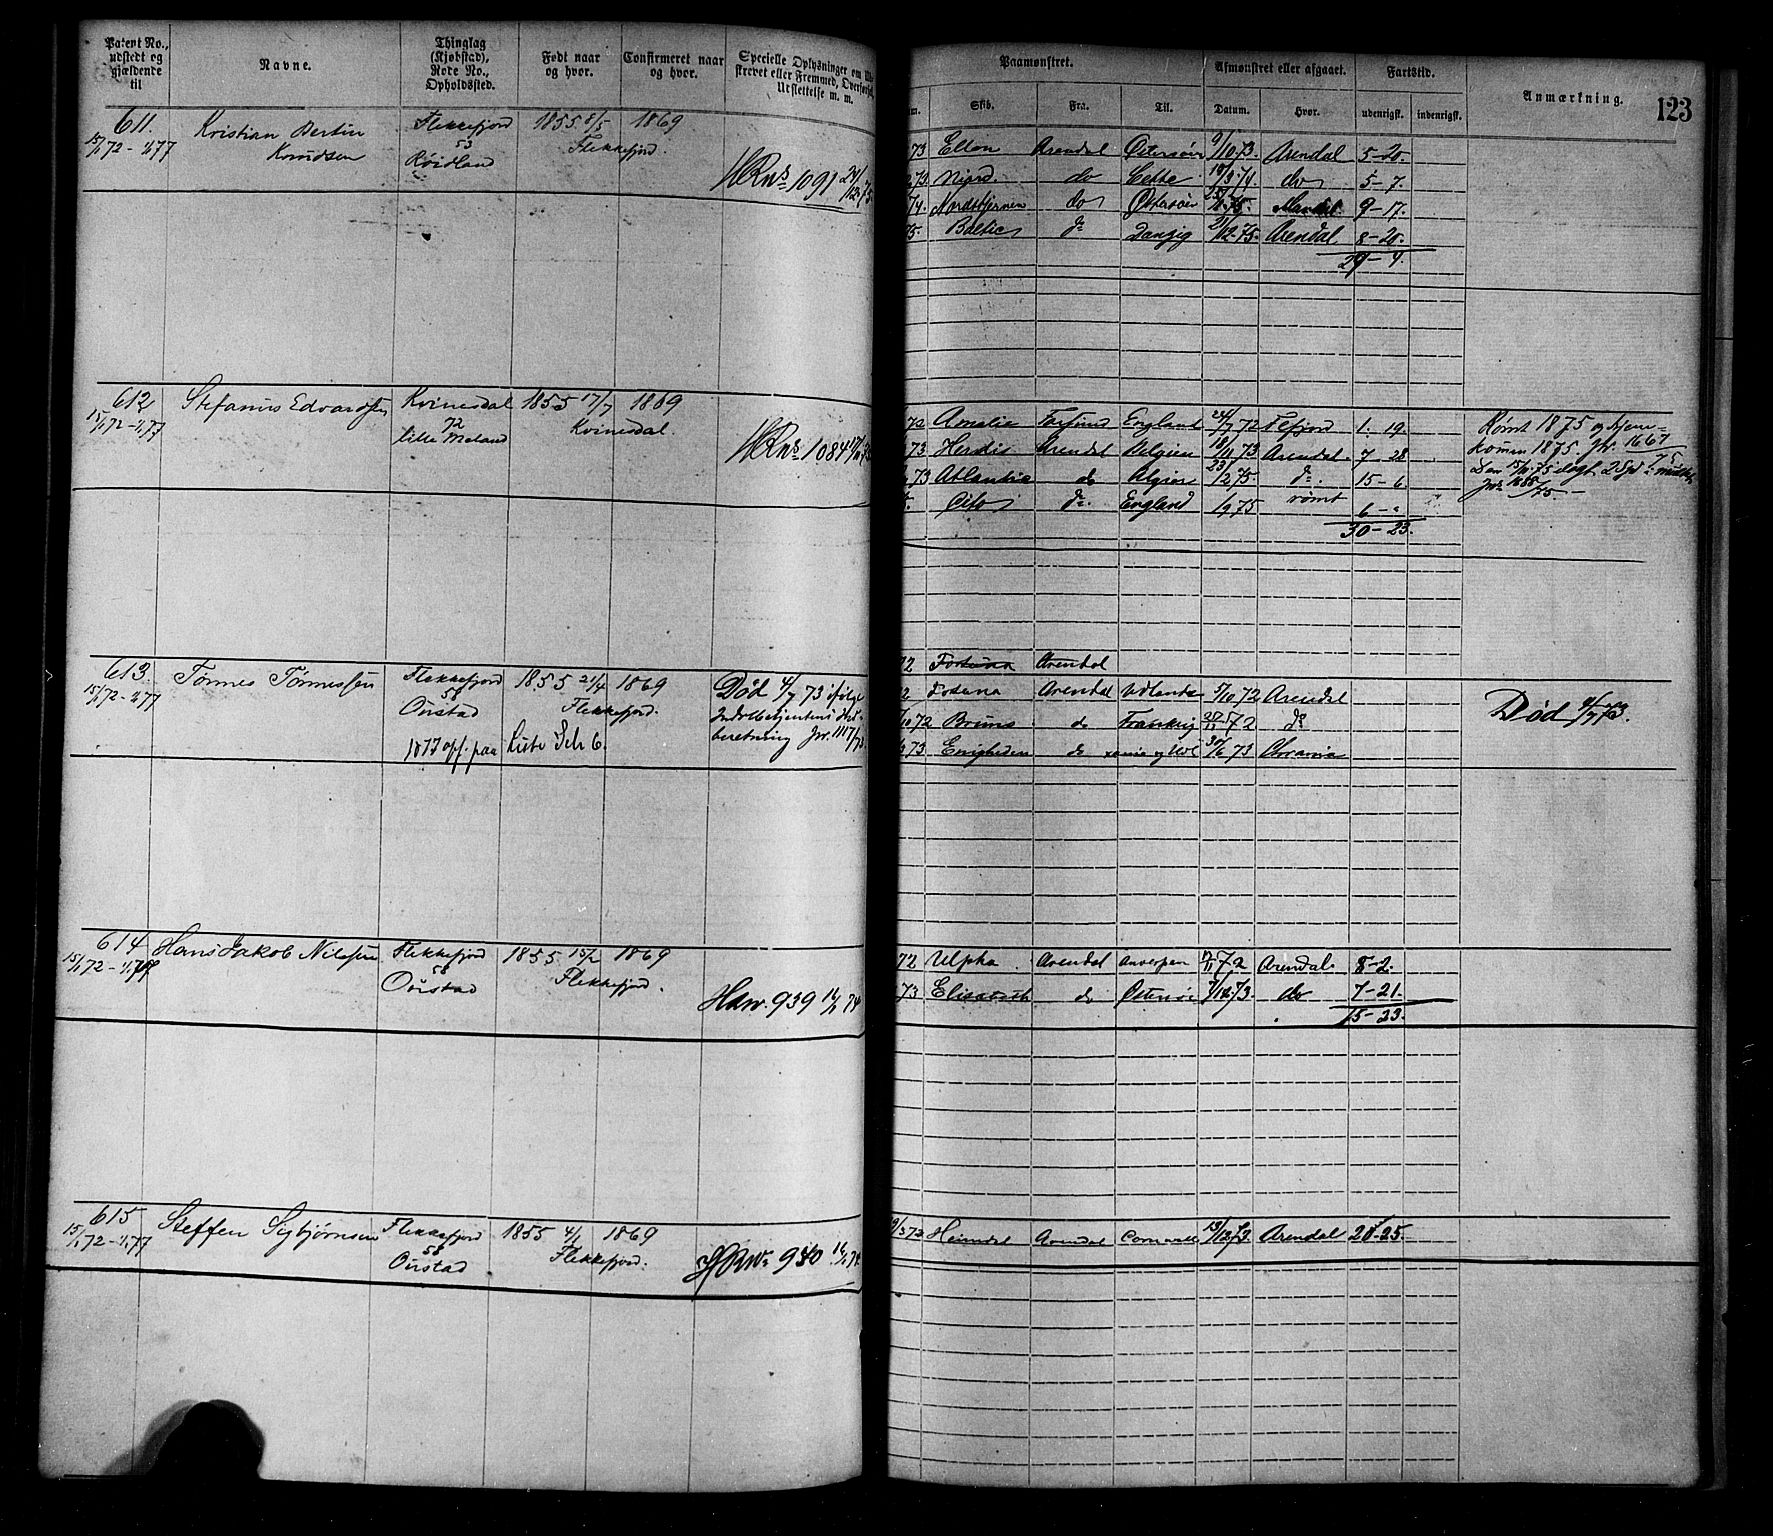 Patent No., udstedt og gjældende til
Navne.
Thinglag (Kjøbstad), Rode No., Opholdssted.
Født naar og hvor.
Confirmeret naar og hvor.
Specielle Oplysninger om
strevet eller Fremmed, Overførsel,
Udslettelse m. m.
611.
15/1 72 - 1/1 77
Kristian Bertin
Knudsen
Flekkefjord
53
Røidland
1855 8/5
1869
Flekkefjord.
HRNs 1091 24/12 75
612
15/1 72 - 1/1 77
Stefanus Edvardsen
Kvinesdal
72
Lille Meland
1855 17/7
1869
Kvinesdal.
HRNs 1084
613.
15/1 72 - 1/1 77
Tønnes Tønnessen
Flekkefjord
58
Oustad
1855 21/4
1869
Flekkefjord.
Død 4/7 73 ifølge
beretning Jnr. 1117/73
1077 opf. paa
614
15/1 72 - 1/1 77
Hans Jakob Nilssen
Flekkefjord
58
Oustad
1855 15/2
1869
Flekkefjord.
939 16/1 74
615
15/1 72 - 1/1 77
Steffen Sigbjørnsen
Flekkefjord
58
Oustad
1855 4/1
1869
Flekkefjord.
940 16/1 74
Paamønstret.
Afmønstret eller afgaaet.
Fartstid.
Anmærkning.
123
Skib.
Fra.
Til.
Datum.
Hvor.
udenrigsk.
indenrigsk.
73 Ellen Arendal Østersøen 9/10 73. Arendal 5-20.
73 Niord do Cette do 5-7.
74. Nordstjernen do Østersøen 9-17.
75. Baltic do Danzig 21/12 75. Arendal 8-20.
29-4.
72 Amalie Farsund England 24/7 72 Flfjord 1. 19.
Rømt 1875 og hjem-
73 Herdis Arendal Belgien 18/11 73 Arendal 7-28
kommen 1875. Jnr. 1667/75
73 Atlantic do Algier 23/2 75. do. 15-6.
Cito do England 1/9 75 rømt 6-"
30-23.
72 Fortuna Arendal
Fortuna Arendal 5/10 72 Arendal
Død 4/7 73.
10 72 Bruns do Frankrig 72 do
73 Enigheden do 30/6 73
72 Ulpha Arendal Anverpen 72 Arendal 8-2.
73 Elisabeth do Østersøen 73. do 7-21.
15-23.
Heimdal Arendal 13/12 73 Arendal 20-25.